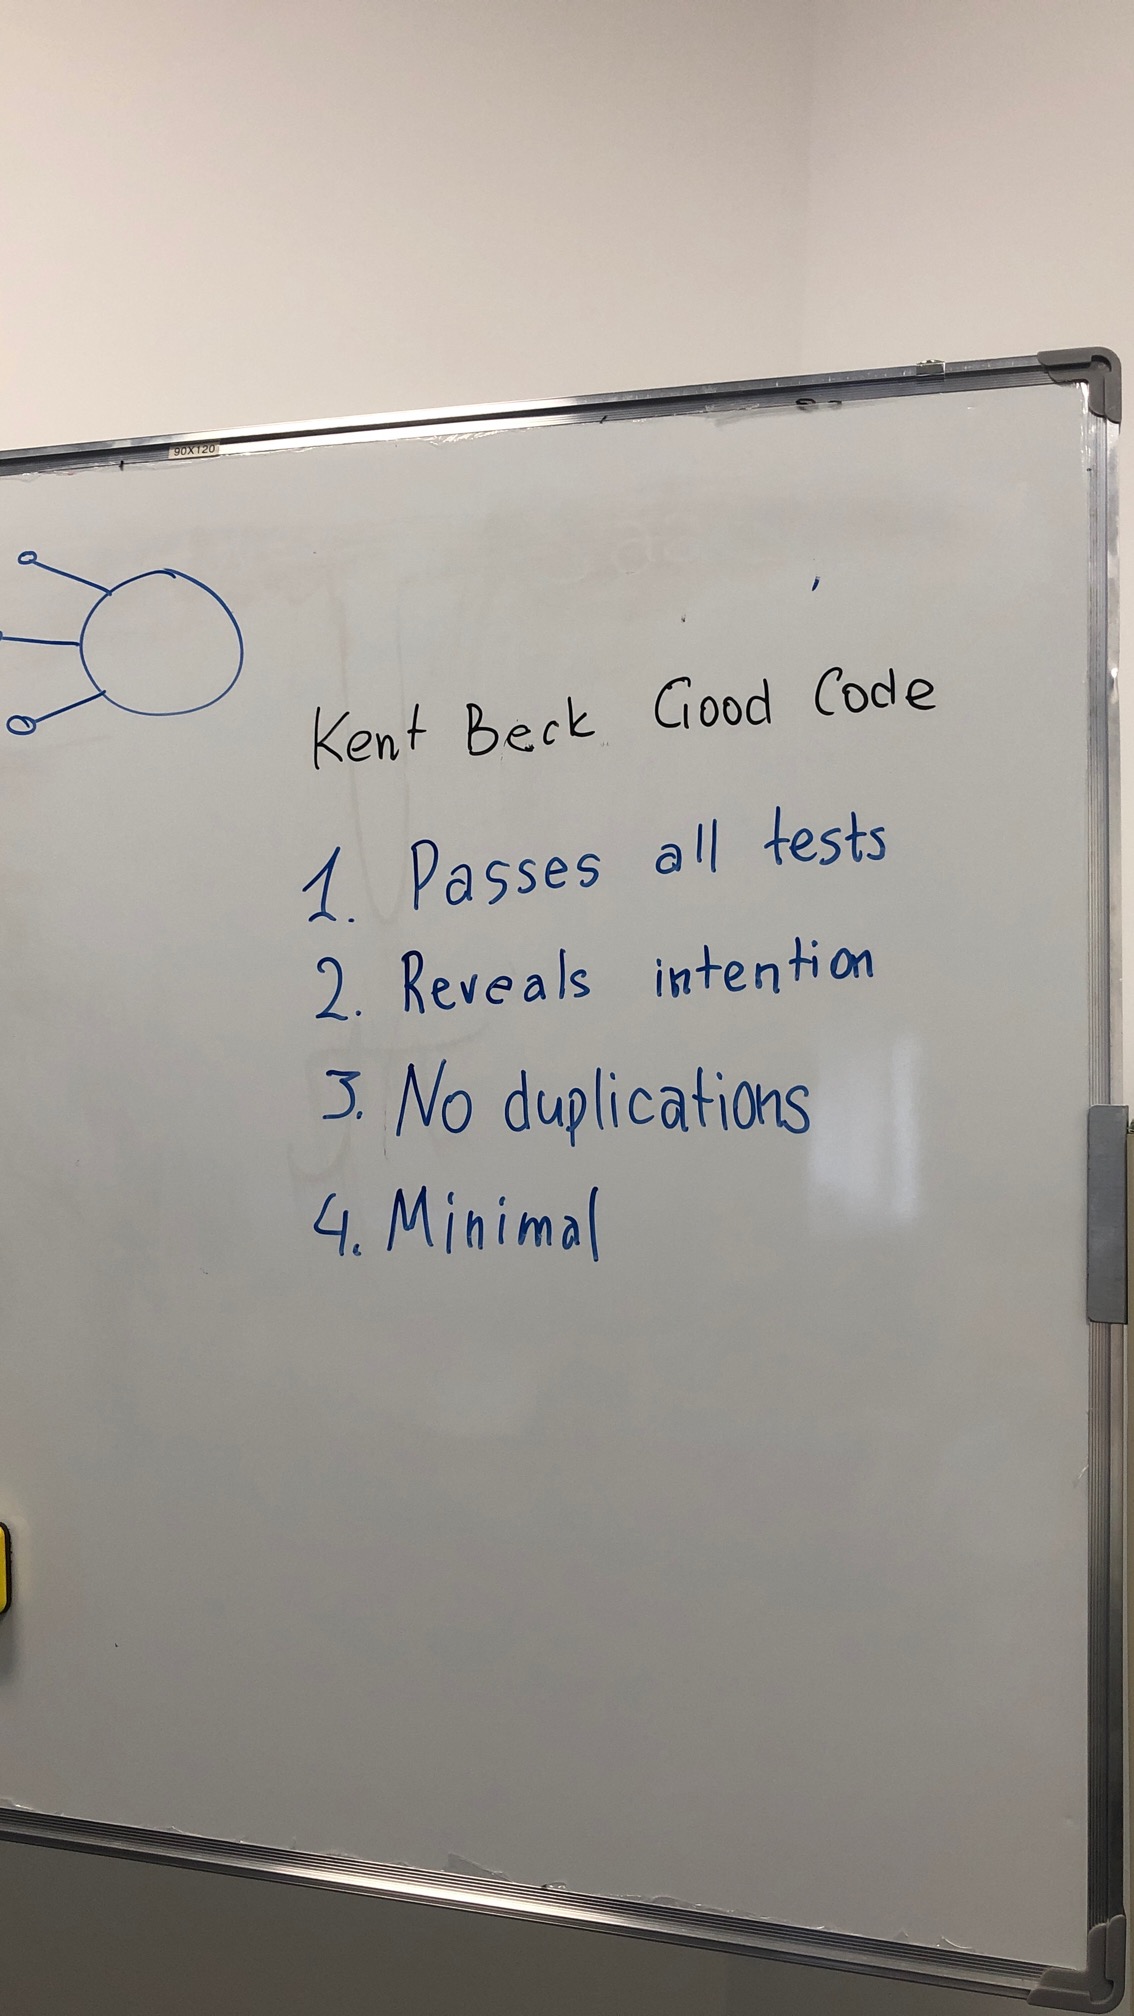 90X120
Kent Beck Good Code
1. Passes all tests
2. Reveals intention
3. No duplications
4. Minimal